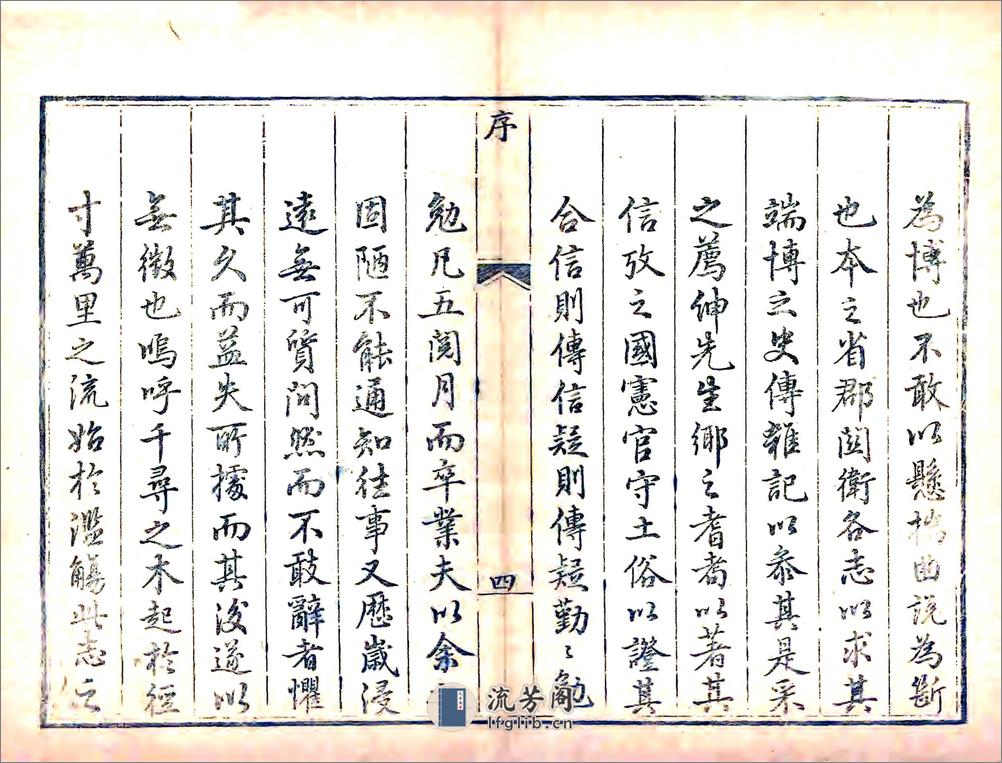 為博也不敢以懸揣曲説為斷
也本之省郡閎衛各志以求其
端博之史傳雜記以叅其是采
之薦紳先生鄉之耆耇以著其
信攷之國憲官守土俗以證其
合信則傳信疑則傳疑勤〻勉
序
四
勉凡五閱月而卒業夫以余
固陋不能通知往事又歴歲浸
遠無可質問然而不敢辭者懼
其久而益失所據而其後遂以
無徵也嗚呼千尋之木起於徑
寸萬里之流始於濫觴此志之
流芳阁
lfglib.cn